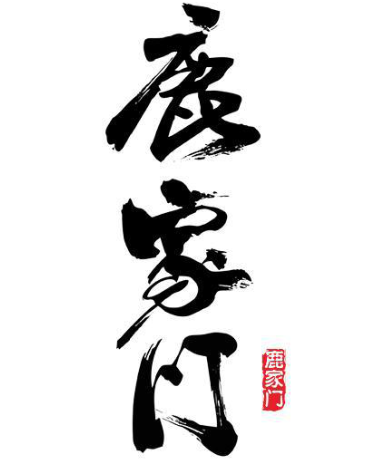 鹿家门
鹿家门